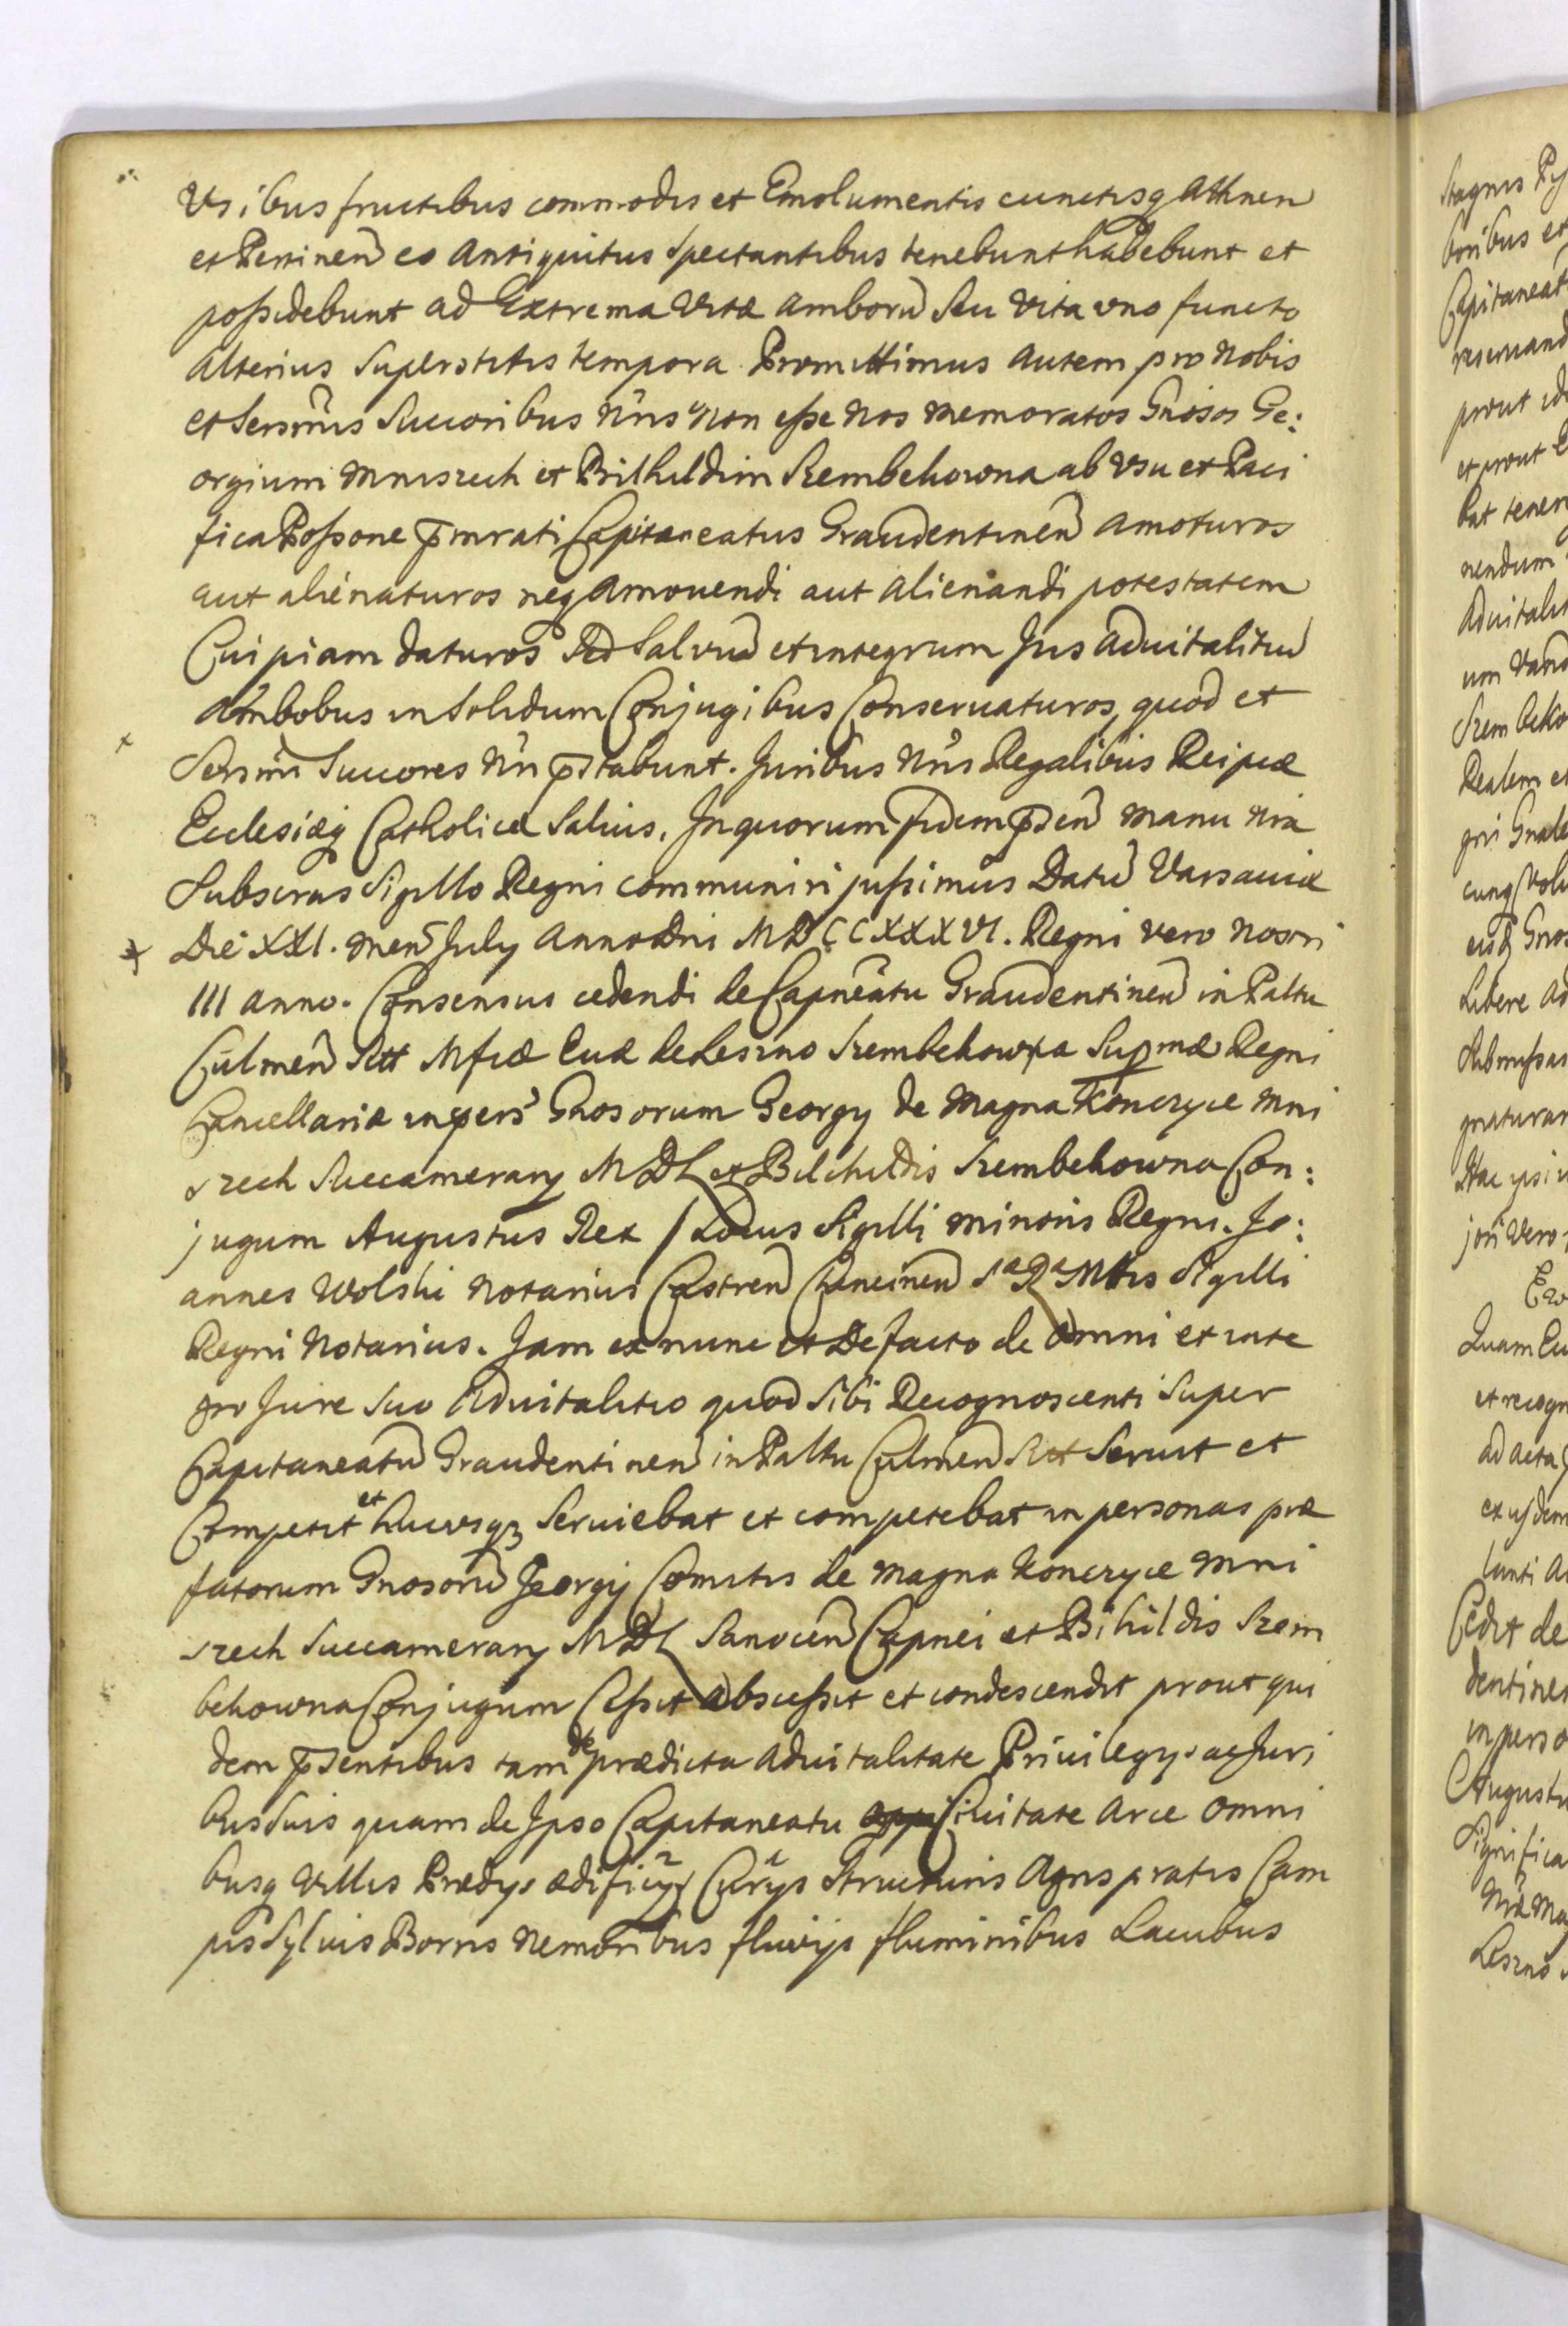 Usibus fructibus commodis et Emolumentis cunctisq Attinen
et Pertinen eo Antiquitus spectantibus tenebunt habebunt et
possidebunt ad Extrema Vitæ amboru seu vita uno functo
alterius superstitis tempora. Promittimus autem pro Nobis
et Sersmis Succoribus Nris non esse nos memoratos Gnosos Ge:
orgium Mniszech et Bilhildim Szembekowna ab usu et Paci
fica Possone pmrati Capitaneatus Graudentinen amoturos
aut alienaturos neq amouendi aut alienandi potestatem
Cuipiam daturos sed salvu et integrum Jus aduitalitiu
ambobus in solidum Conjugibus Conseruaturos, quod et
Sersmi Succores Nri pstabunt. Juribus Nris Regalibus Reipcæ
Ecclesiæq Catholicæ saluis. In quorum fidem psen manu Nra
Subscras Sigillo Regni communiri jussimus Datu Varsauiæ
Die XXI. men July Anno Dni MDCCXXXVI. Regni vero nostri
III anno. Consensus cedendi de Capneatu Graudentinen in Paltu
Culmen Sitt Mficæ Euæ de Leszno Szembekowa Supmæ Regni
Cancellariæ in pers Gnosorum Georgy de Magna Konczyce Mni
szech Succamerary MDL et Bilchildis Szembekowna Con:
jugum Augustus Rex / Locus Sigilli minoris Regni. Jo:
annes Wolski Notarius Castren Chencinen Sa Ra Mttis Sigilli
Regni Notarius. Jam ex nunc et de facto de omni et inte
gro Jure suo aduitalitio quod sibi Recognoscenti super
Capitaneatu Graudentinen in Paltu Culmen Sitt seruit et
Competit et hucusq seruiebat et competebat in personas præ
fatorum Gnosoru Georgij Comitis de Magna Konczyce Mni
szech Succamerary MDL Sanocen Capnei et Bihildis Szem
bekowna Conjugum Cessit abscessit et condescendit prout qui
dem psentibus tam de prædicta aduitalitate Priuilegys ac Juri
bus suis quam de Ipso Capitaneatu Ciuitate Arce omni
busq Villis Prædys ædificys Curys Structuris Agris pratis Cam
pis Syluis Borris Nemoribus fluvijs fluminibus Lacubus